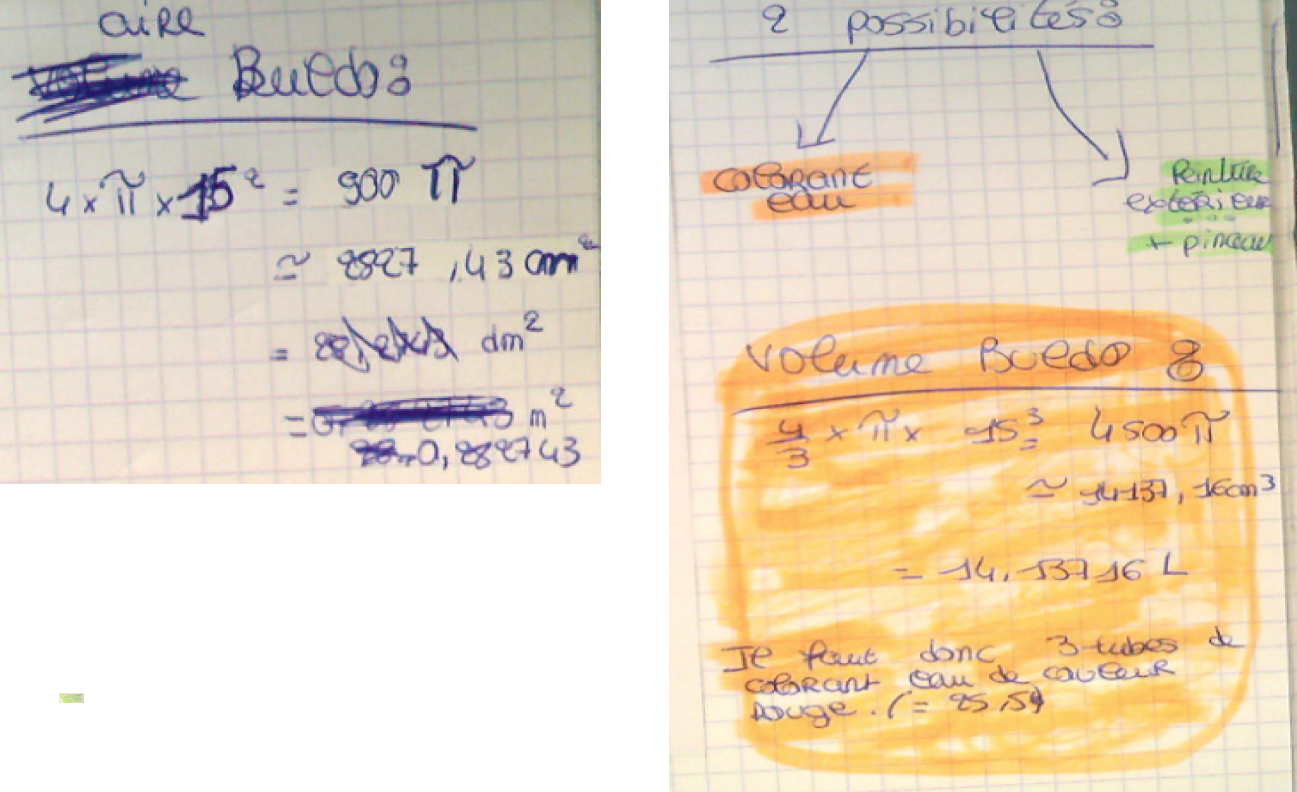 aire
Buldo:
4 × π × 15² = 900 π
≃ 2827,43 cm²
= dm²
= m²
0,282743
2 possibilités:
colorant
eau
Peinture
extérieur
+ pinceau
Volume Buldo:
4/3 × π × 15³ = 4500 π
≃ 14137,16 cm³
= 14,13716 L
Il faut donc 3 tubes de
colorant eau de couleur
rouge. (=